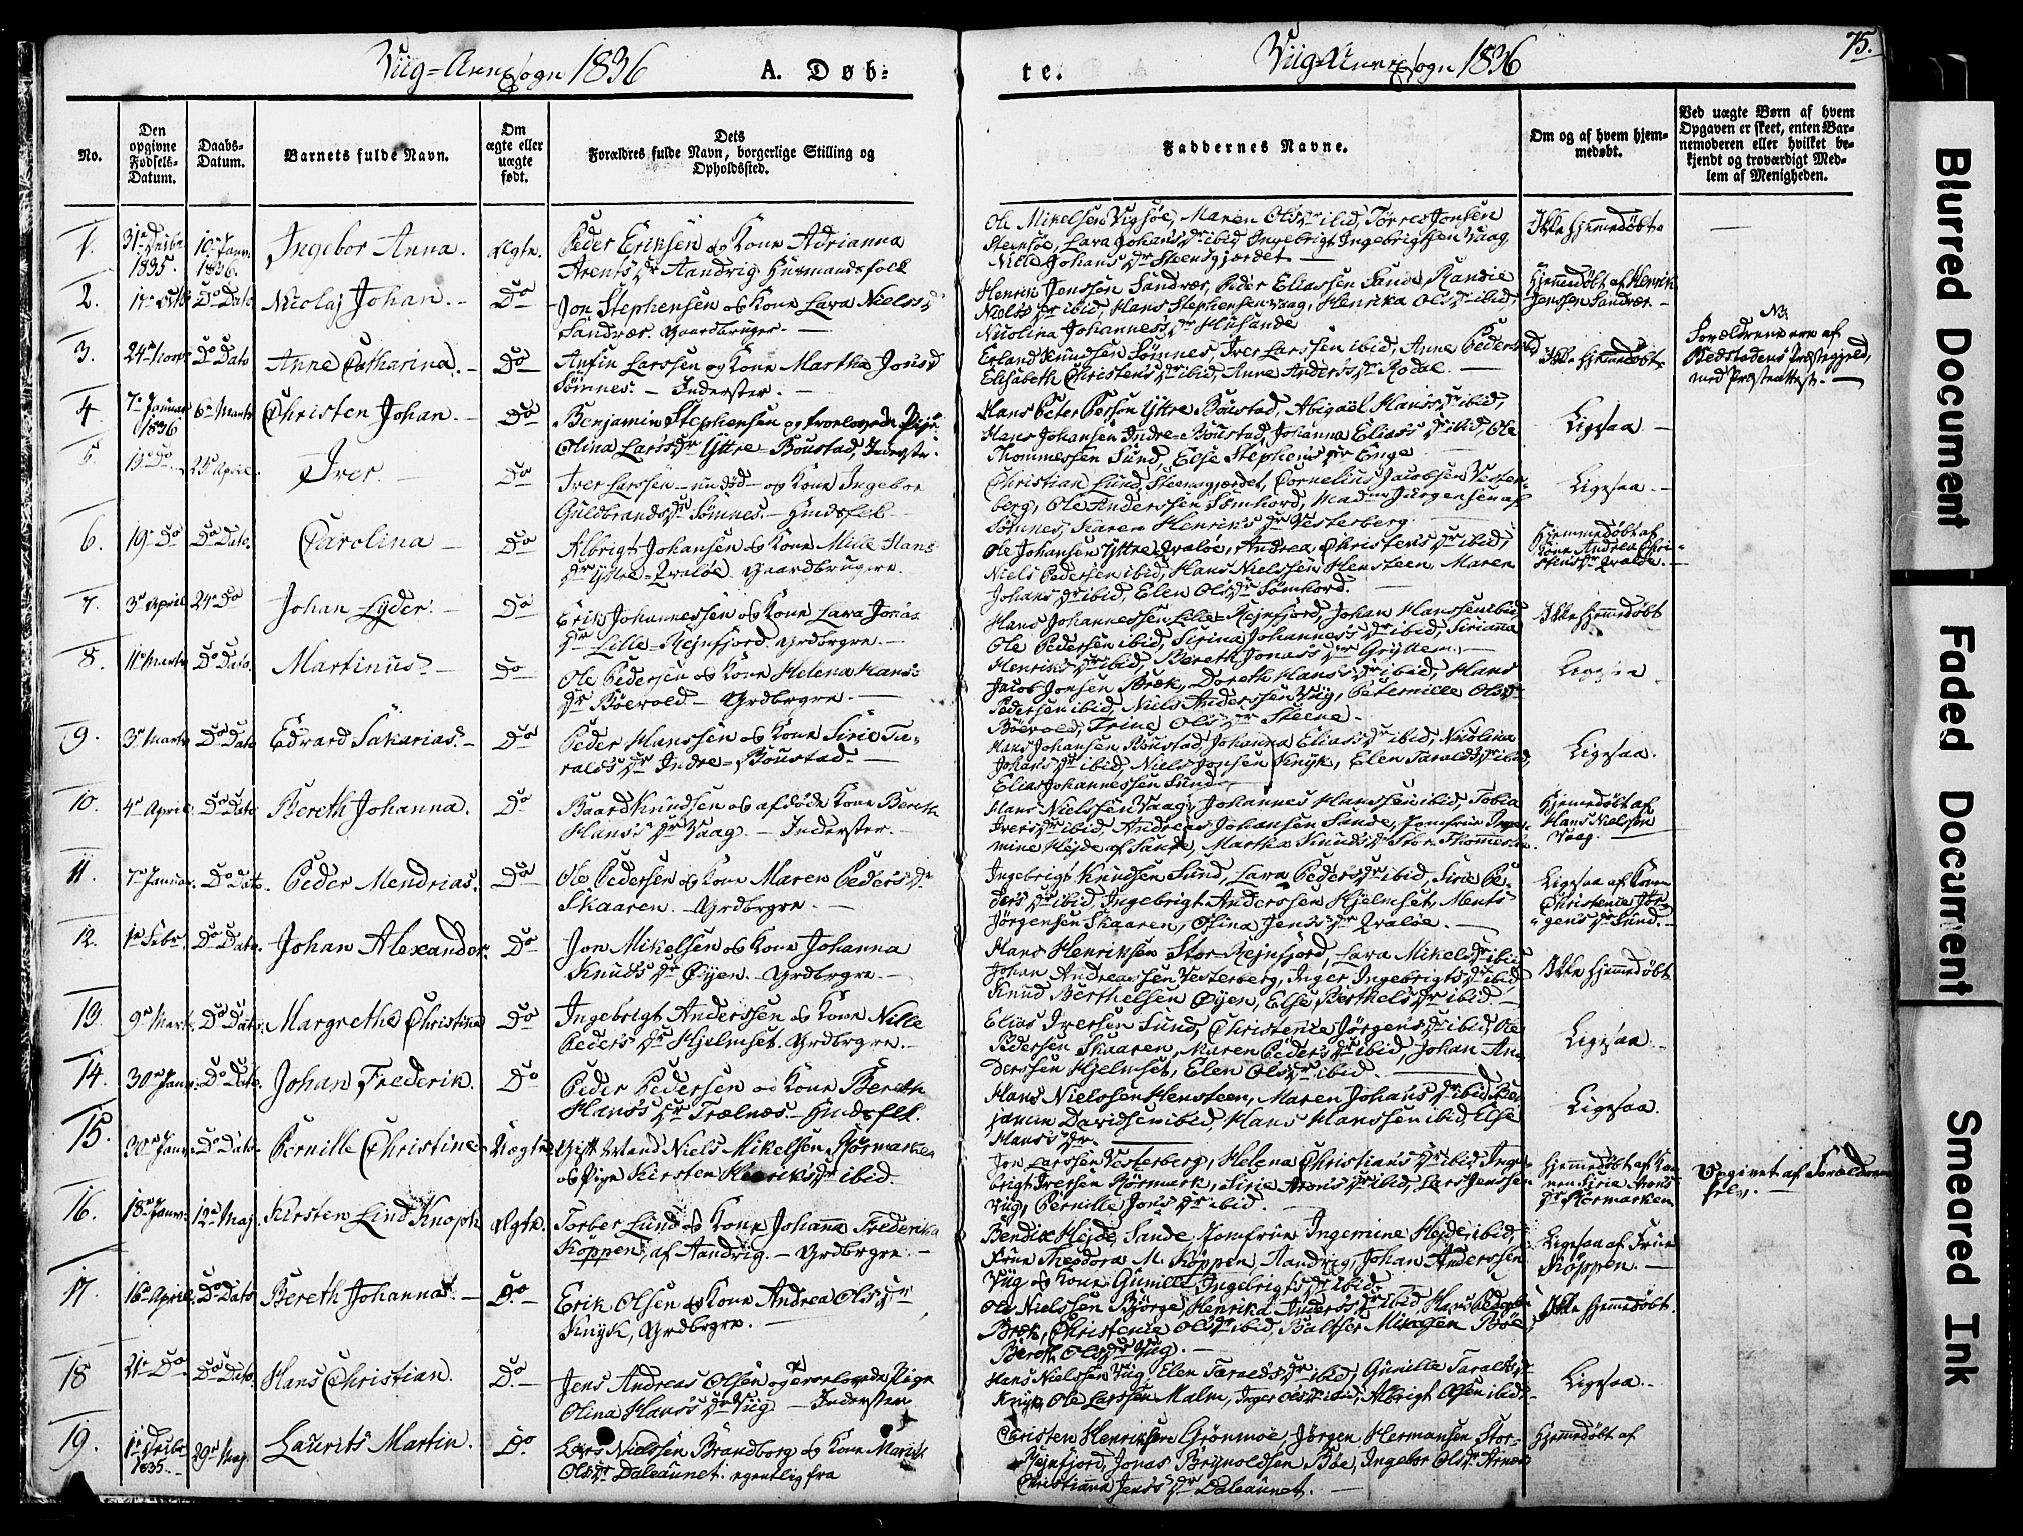 Viig-Annexsogn 1836
A. Døb-
te.
Viig-Annexsogn 1836
75.
No.
Den opgivne Fødsels-Datum.
Daabs-Datum.
Barnets fulde Navn.
Om ægte eller uægte født.
Dets
Forældres fulde Navn, borgerlige Stilling og
Opholdssted.
Faddernes Navne.
Om og af hvem hjem-
medøbt.
Ved uægte Børn af hvem
Opgaven er skeet, enten Bar-
nemoderen eller hvilket be-
kjendt og troværdigt Med-
lem af Menigheden.
1. 31e Decbr 1835. 10e Janv. 1836. Ingebor Anna. Ægte.
Peder Eriksen og Kone Adrianna
Arents Dr Aandvig Husmandsfolk
Ole Mikelsen Vigsøe, Maren Ols Dr ibid Torres Jonsen
Steensøe, Lava Johans Dr ibid Ingebrigt Ingebrigtsen Vaag
Nille Johans Dr Steensgjærdet
Ikke hjemmedøbt
2. Do Dato Nicolaj Johan. Do
Jon Stephensen og Kone Lava Niels D
Sandvær. Gaardbruger.
Henrik Jenssen Sandvær, Peder Eliassen Sande, Randie
Niels Dr ibid, Hans Stephensen Vaag, Henrika Ols Dr ibid,
Nicolina Johannes Dr Husande
Hjemmedøbt af Henrik
Jenssen Sandvær.
3. 24e Do Dato Anne Catharina. Do
Anfin Larssen og Kone Martha Jons D
Sømnes. Inderster.
Erland Knudsen Sømnes, Iver Larssen ibid, Anne Peders D
Elisabeth Christens Dr ibid, Anne Anders Dr Rodal.
Ikke hjemmedøbt
N3
Forældrene ere af
Bedstadens Præstegjeld,
med Præsteattest.
4. 7e Januar 1836 6e Marts Christen Johan. Do
Benjamin Stephensen og trolovede Pige
Olina Lars Dr Yttre-Boustad, Inderste.
Hans Peter Person Yttre Boustad, Abigaël Hans Dr ibid,
Hans Johansen Indre-Boustad, Johanna Elias Dr ibid, Ole
Thommessen Sund, Else Stephens Dr Enge
Ligesaa
5. 13e Do 24e April. Iver. Do
Iver Larssen - og Kone Ingebor
Guldbrands Dr Sømnes. Huusfolk
Christian Lund, Steensgjærdet, Cornelius Jacobsen Vester-
berg, Ole Anderssen Sømhovd, Madm Jürgensen af
Sømnes, Karen Henriks Dr Vesterberg.
Ligesaa.
6. 19e Do Do Dato. Carolina Do
Albrigt Johansen og Kone Mille Hans
Dr Yttre-Qvaløe Gaardbrugere.
Ole Johansen Yttre Qvaløe, Andrea Christens Dr ibid,
Niels Pedersen ibid, Hans Nielssen Hensteen, Maren
Johans Dr ibid, Elen Ols Dr Sømhovd.
Hjemmedøbt af
Kone Andrea Chri-
stens Dr Qvaløe.
7. 3e April 24e Do Johan Lyder. Do
Erik Johannessen og Kone Lava Jonas
Dr Lille-Rejnfjord. Grdbrgre.
Hans Johannessen Lille-Rejnfjord, Johan Hanssen ibid,
Ole Pedersen ibid, Sirina Johannes Dr ibid, Sirianna
Henriks Dr ibid, Bereth Jonas Dr
Ikke hjemmedøbt
8. 11e Marts Do Dato. Martinus. Do
Ole Pedersen og Kone Helena Hans
Dr Bøevold. Grdbrgre.
Jacob Jonsen Bræk, Doreth Hans Dr ibid, Hans
Pedersen ibid, Niels Anderssen Viig, Petemille Ols Dr
Bøevold, Trine Ols Dr Steene.
Ligesaa
9. 3e Marts Do Dato Edvard Sakarias. Do
Peder Hanssen og Kone Sirie Ta-
ralds Dr Indre-Boustad.
Hans Johansen Boustad, Johanna Elias Dr ibid, Nicolina
Johans Dr ibid, Niels Jonsen Knyk, Elen Taralds Dr ibid,
Elias Johannessen Sund.
Ligesaa.
10. 4e April Do Dato Bereth Johanna. Do
Baard Knudsen og afdøde Kone Bereth
Hans Dr Vaag. Inderster.
Hans Nielssen Vaag, Johannes Hanssen ibid, Tobia
Ivers Dr ibid, Andreas Johansen Sund, Jomfrue Inge-
mine Hejde af Sande, Martha Knuds Dr Stor-Thommesen
Hjemmedøbt af
Hans Nielssen
Vaag.
11. 7e Januar. Do Dato. Peder Mendrias. Do
Ole Pedersen og Kone Maren Peders Dr
Skaaren. Grdbrgre.
Ingebrigt Knudsen Sund, Lava Peders Dr ibid, Sirie Pe-
ders Dr ibid, Ingebrigt Anderssen Hjelmset, Ments
Jørgensen Skaaren, Olina Jens Dr Qvaløe.
Ligesaa af Konen
Christenie Jør-
gens Dr Sund.
12. 1e Febr. Do Dato. Johan Alexander. Do
Jon Mikelsen og Kone Johanna
Knuds Dr Øyen. Grdbrgre.
Hans Henriksen Stor-Rejnfjord, Lava Mikels Dr ibid
Johan Andreassen Vesterberg, Inger Ingebrigts Dr ibid
Knud Berthelsen Øyen, Else Berthels Dr ibid
Ikke hjemmedøbt
13. 9e Marts. Do Dato. Margretha Christina Do
Ingebrigt Anderssen og Kone Nille
Peders Dr Hjelmset. Grdbrgre.
Elias Iversen Sund, Christenie Jørgens Dr ibid, Ole
Pedersen Skaaren, Maren Peders Dr ibid, Johan An-
derssen Hjelmset, Elen Ols Dr ibid.
Ligesaa.
14. 30e Janv. Do Dato. Johan Frederik. Do
Peder Pedersen og Kone Bereth
Hans Dr Trælnæs. Huusfolk.
Hans Nielssen Hensteen, Maren Johans Dr ibid, Ben-
jamin Davidsen ibid, Hans Hanssen ibid, Else
Hans Dr.
Ligesaa.
15. 30e Janv. Do Dato. Pernille Christine Uægte
Gift Mand Niels Mikelsen Kjørmarken
og Pige Kirsten Henriks Dr ibid
Jon Larssen Vesterberg, Helena Christians Dr ibid, Inge-
brigt Iversen Kjørmark, Sirie Arons Dr ibid, Lars Jenssen
Viig, Pernille Jons Dr ibid.
Hjemmedøbt af Ko-
nen Sirie Arons
Dr Kjørmarken
Opgivet af Forældrene
selv.
16. 18e Janv. 12e Maj Kirsten Lind Knoph Ægte.
Torber Lund og Kone Johanna Frederika
Köppen, af Aandvig. Grdbrgre.
Bendix Hejde, Sande, Jomfrue Ingemine Hejde ibid,
Frue Theodora M. Köppen, Aandvig, Johan Anderssen
Viig og Kone Gunille Ingebrigts Dr ibid.
Ligesaa af Frue
Köppen.
17. 16e April. Do Dato Bereth Johanna. Do
Erik Olsen og Kone Andrea Ols Dr
Knyk, Grdbrgre.
Ole Nielssen Bjørge, Henrika Anders Dr ibid, Hans Pedersen
Bræk, Christenie Ols Dr ibid, Balthser Mikelsen Bøe,
Bereth Ols Dr Viig.
Ikke hjemmedøbt.
18 21e Do Do Dato Hans Christian. Do
Jens Andreas Olsen og trolovede Pige
Olina Hans Dr Viig Inderster
Hans Nielssen Viig, Elen Taralds Dr ibid, Gunille Taralds Dr
Knyk, Ole Larssen Malm, Inger Ols Dr ibid, Albrigt Olsen ibid
Ligesaa.
19. 1e Decbr 1835. 29e Maj Laurits Martin. Do
Lars Nielssen Brandborg og Kone Marith
Ols Dr Daleaunet. egentlig fra
Christen Henriksen Grønmoe, Jørgen Hermansen Stor-
Rejnfjord, Jonas Brynoldsen Bøe, Ingebor Ols Dr
Christianna Jens Dr Daleaunet.
Hjemmedøbt af
Blurred Document
Faded Document
Smeared Ink